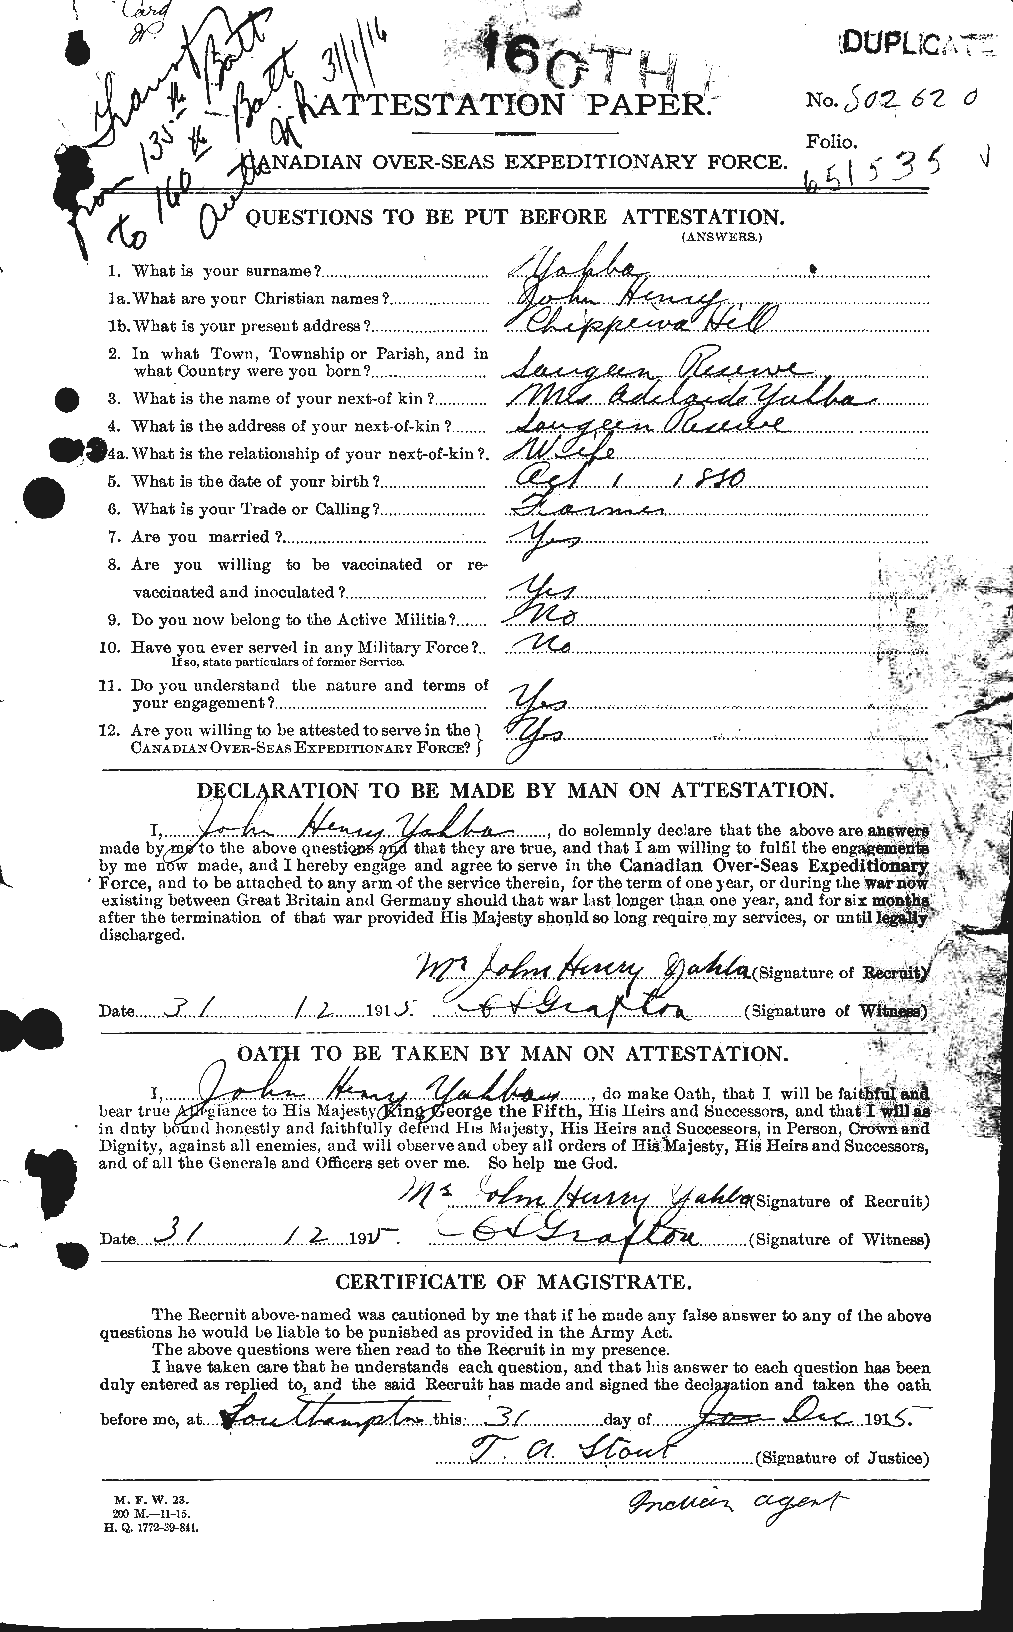 Card
Transf
from 135th Batt
to 160th Batt
Auth
31/1/16
160TH
DUPLICATE
ATTESTATION PAPER.
No. 502620
Folio.
651535
CANADIAN OVER-SEAS EXPEDITIONARY FORCE.
QUESTIONS TO BE PUT BEFORE ATTESTATION.
(ANSWERS.)
1. What is your surname? Yahba
1a. What are your Christian names? John Henry
1b. What is your present address? Chippewa Hill
2. In what Town, Township or Parish, and in
what Country were you born? Saugeen Reserve
3. What is the name of your next-of kin? Mrs Adelaide Yahba
4. What is the address of your next-of-kin? Saugeen Reserve
4a. What is the relationship of your next-of-kin? Wife
5. What is the date of your birth? Oct 1 1880
6. What is your Trade or Calling? Farmer
7. Are you married? Yes
8. Are you willing to be vaccinated or re-
vaccinated and inoculated? Yes
9. Do you now belong to the Active Militia? No
10. Have you ever served in any Military Force? No
If so, state particulars of former Service.
11. Do you understand the nature and terms of
your engagement? Yes
12. Are you willing to be attested to serve in the } Yes
CANADIAN OVER-SEAS EXPEDITIONARY FORCE? }
DECLARATION TO BE MADE BY MAN ON ATTESTATION.
I, John Henry Yahba, do solemnly declare that the above are answers
made by me to the above questions and that they are true, and that I am willing to fulfil the engagements
by me now made, and I hereby engage and agree to serve in the Canadian Over-Seas Expeditionary
Force, and to be attached to any arm of the service therein, for the term of one year, or during the war now
existing between Great Britain and Germany should that war last longer than one year, and for six months
after the termination of that war provided His Majesty should so long require my services, or until legally
discharged.
Mr John Henry Yahba (Signature of Recruit)
Date 31 12 1915. Grafton (Signature of Witness)
OATH TO BE TAKEN BY MAN ON ATTESTATION.
I, John Henry Yahba, do make Oath, that I will be faithful and
bear true Allegiance to His Majesty King George the Fifth, His Heirs and Successors, and that I will as
in duty bound honestly and faithfully defend His Majesty, His Heirs and Successors, in Person, Crown and
Dignity, against all enemies, and will observe and obey all orders of His Majesty, His Heirs and Successors,
and of all the Generals and Officers set over me. So help me God.
Mr John Henry Yahba (Signature of Recruit)
Date 31 12 1915. Grafton (Signature of Witness)
CERTIFICATE OF MAGISTRATE.
The Recruit above-named was cautioned by me that if he made any false answer to any of the above
questions he would be liable to be punished as provided in the Army Act.
The above questions were then read to the Recruit in my presence.
I have taken care that he understands each question, and that his answer to each question has been
duly entered as replied to, and the said Recruit has made and signed the declaration and taken the oath
before me, at Southampton this 31 day of Jan Dec 1915.
T. A. Stout (Signature of Justice)
Indian agent
M. F. W. 23.
200 M.—11-15.
H. Q. 1772-39-841.